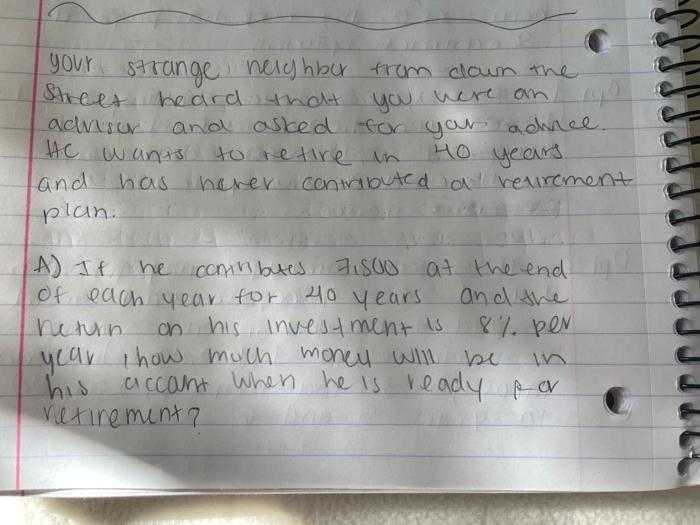 your strange neighbor from down the
street heard that you were an
advisor and asked for your advice.
He wants to retire in 40 years
and has never contributed a retirement
plan.
A) If he contributes 7,500 at the end
of each year for 40 years and the
return on his investment is 8% per
year, how much money will be in
his account when he is ready for
retirement?